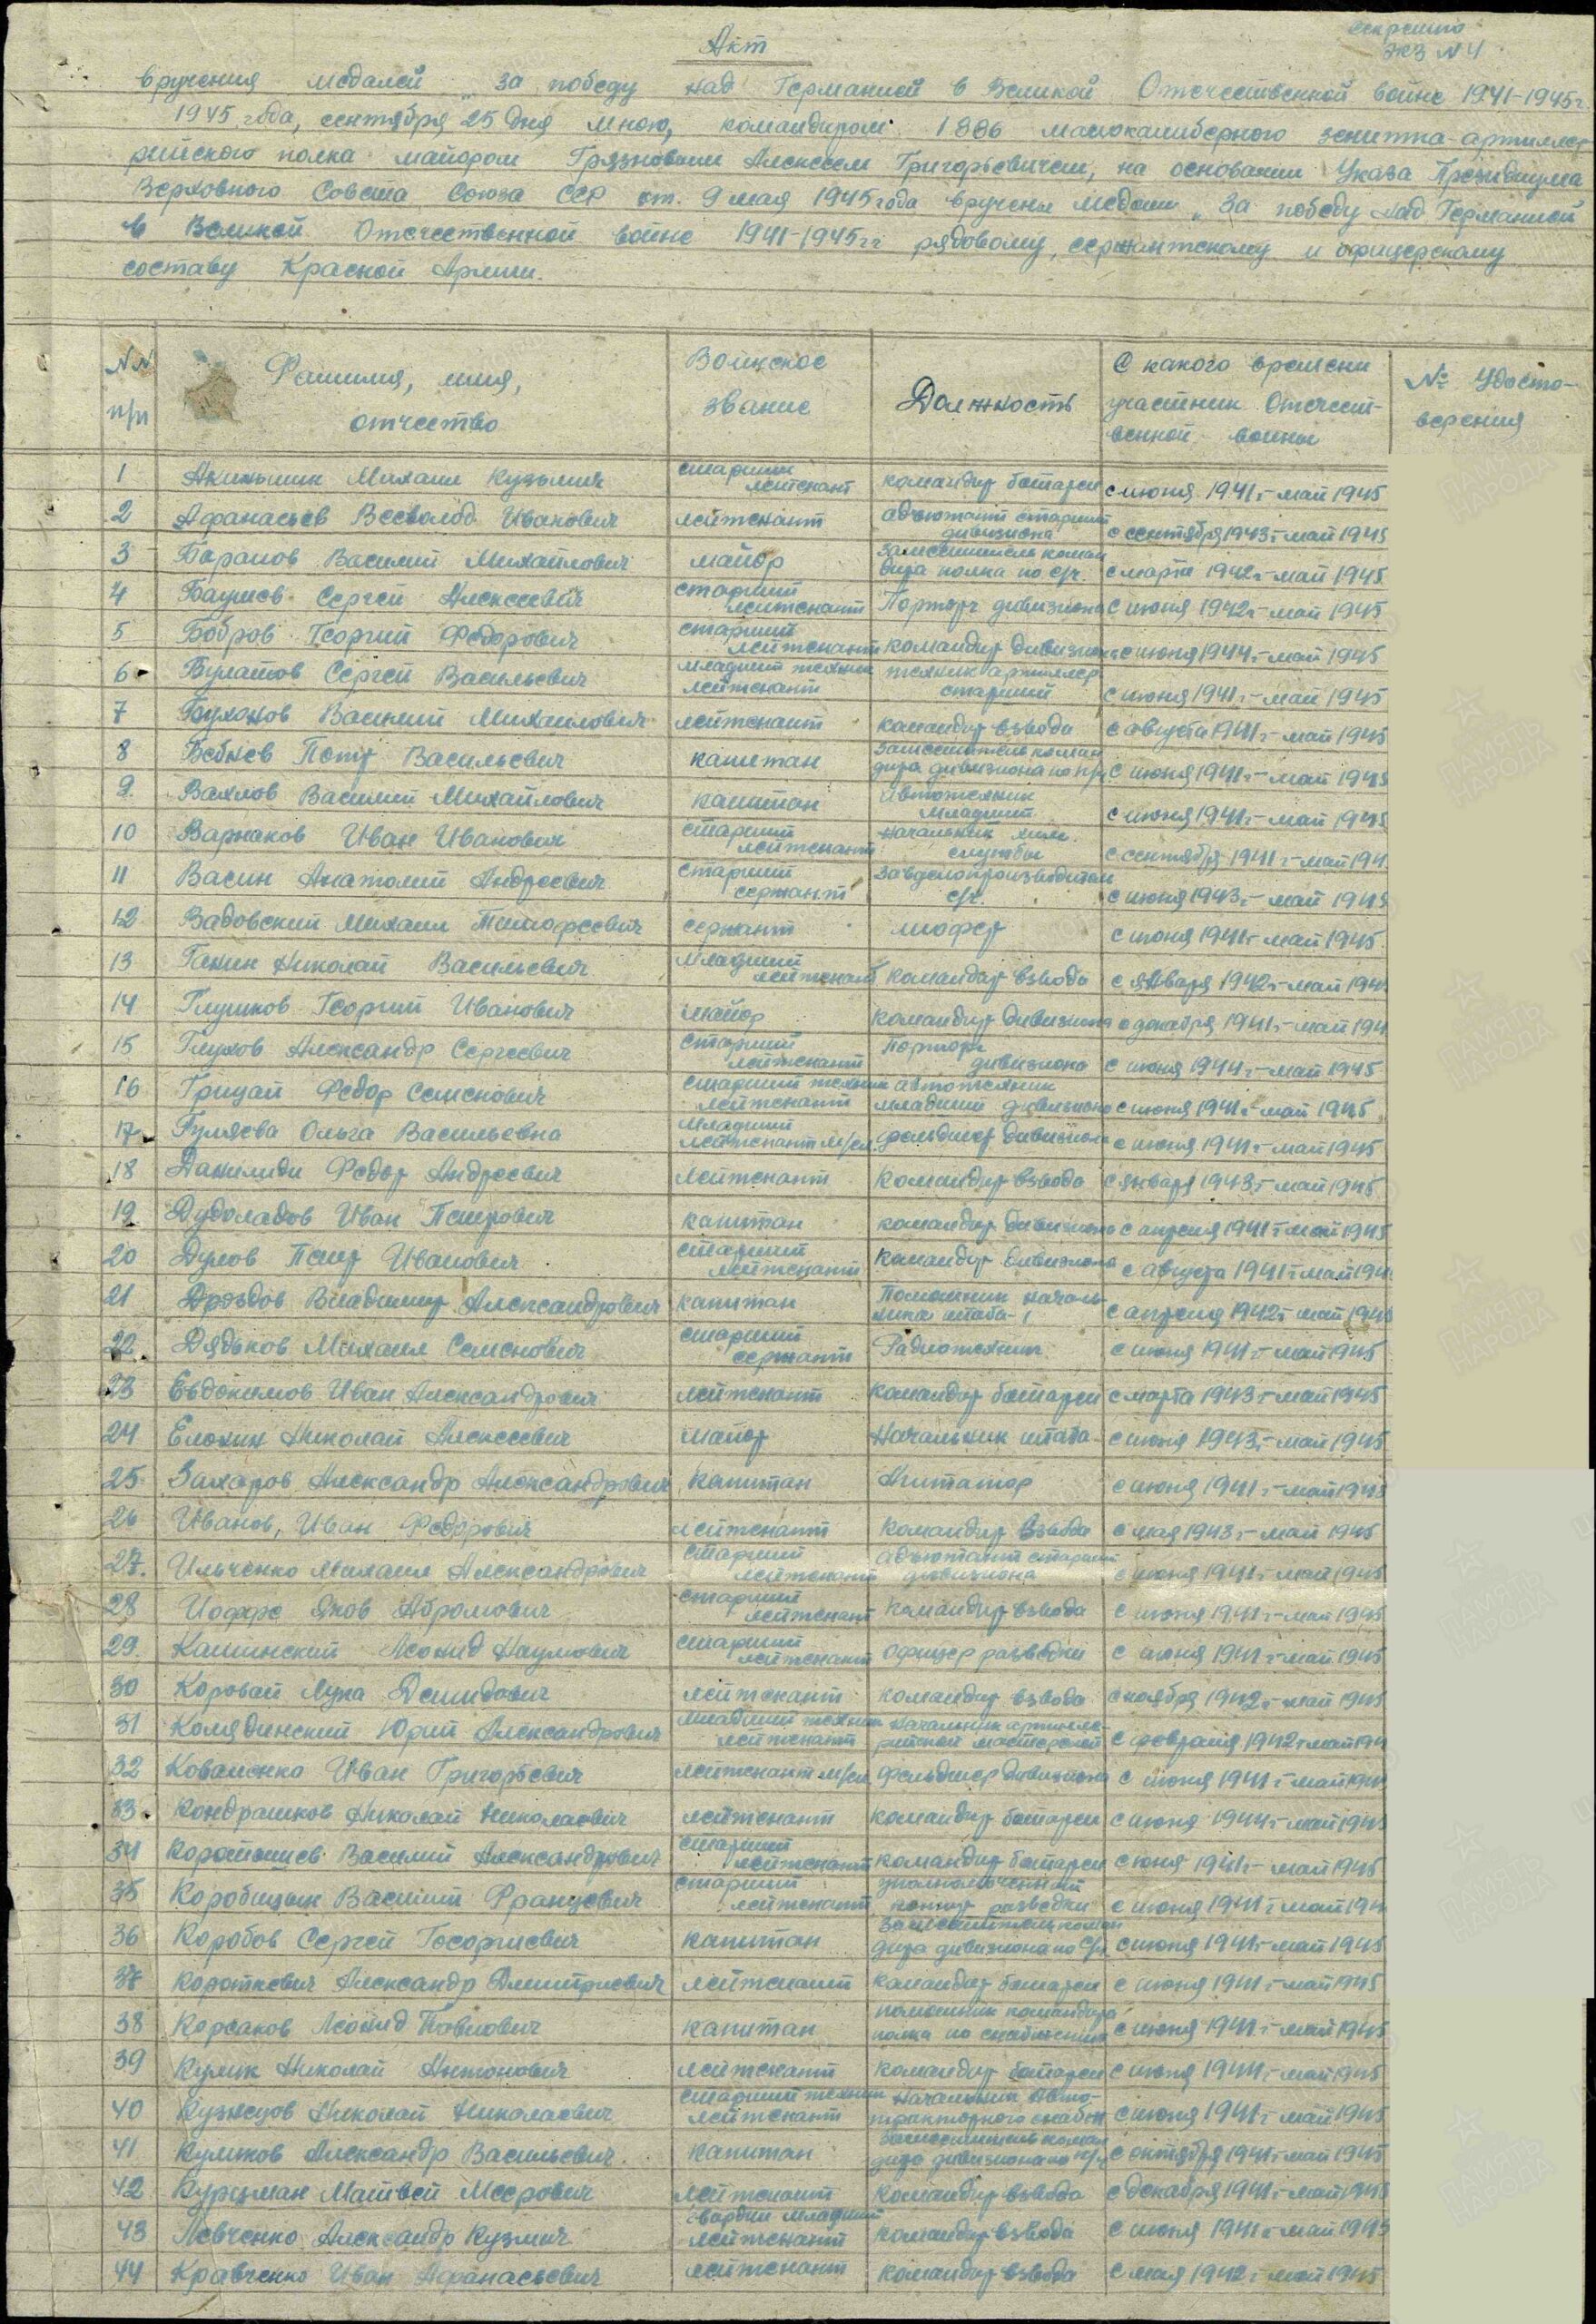 секретно
экз N 4
Акт
вручения медалей „За победу над Германией в Великой Отечественной войне 1941-1945г.
1945 года, сентября 25 дня мною, командиром 1886 малокалиберного зенитна-артилле-
рийского полка майором Грязновым Алексеем Григорьевичем, на основании Указа Президиума
Верховного Совета Союза ССР от 9 мая 1945 года вручены медали „За победу над Германией
в Великой Отечественной войне 1941-1945гг рядовому, сержантскому и офицерскому
составу Красной Армии.
NN п/п Фамилия, имя, отчество Воинское звание Должность С какого времени участник Отечест-венной войны № Удосто-верения
1 Михаил Кузьмич старший лейтенант командир батареи с июня 1941г-май 1945
2 Афанасьев Всеволод Иванович лейтенант адъютант старший дивизиона с сентября 1943г-май 1945
3 Баранов Василий Михайлович майор заместитель коман дира полка по с/ч. с марта 1942г-май 1945
4 Сергей Алексеевич старший лейтенант Парторг дивизиона с июня 1942г-май 1945
5 Бобров Георгий Федорович старший лейтенант командир дивизиона с июня 1944г-май 1945
6 Булатов Сергей Васильевич младший техник лейтенант техник артиллер старший с июня 1941г-май 1945
7 Василий Михайлович лейтенант командир взвода с августа 1941г-май 1945
8 Петр Васильевич капитан заместитель коман дира дивизиона по п/ч с июня 1941г-май 1945
9 Вахлов Василий Михайлович капитан автотехник младший с июня 1941г-май 1945
10 Варнаков Иван Иванович старший лейтенант начальник хим. службы с сентября 1941г-май 194
11 Васин Анатолий Андреевич старший сержант завделопроизводством с/ч. с июня 1943г-май 1945
12 Вадовский Михаил Тимофеевич сержант шофер с июня 1941г-май 1945
13 Ганин Николай Васильевич младший лейтенант командир взвода с января 1942г-май 194
14 Глушков Георгий Иванович майор командир дивизиона с декабря 1941г-май 194
15 Глухов Александр Сергеевич старший лейтенант Парторг дивизиона с июня 1944г-май 1945
16 Грицай Федор Семенович старший техник лейтенант автотехник младший дивизиона с июня 1941г-май 1945
17 Гуляева Ольга Васильевна младший лейтенант м/сл. фельдшер дивизиона с июня 1941г-май 1945
18 Данилиди Федор Андреевич лейтенант командир взвода с января 1943г-май 1945
19 Дудоладов Иван Петрович капитан командир дивизиона с апреля 1941г-май 1945
20 Петр Иванович старший лейтенант командир дивизиона с августа 1941г-май 194
21 Дроздов Владимир Александрович капитан Помошник началь-ника штаба-1 с апреля 1942г-май 1945
22 Дядьков Михаил Семенович старший сержант Радиотехник с июня 1941г-май 1945
23 Евдокимов Иван Александрович лейтенант командир батареи с марта 1943г-май 1945
24 Елохин Николай Алексеевич майор Начальник штаба с июня 1943г-май 1945
25 Захаров Александр Александрович капитан Агитатор с июня 1941г-май 1945
26 Иванов, Иван Федорович лейтенант командир взвода с мая 1943г-май 1945
27. Ильченко Михаил Александрович старший лейтенант адъютант старший дивизиона с июня 1941г-май 1945
28 Иоффе Яков Абрамович старший лейтенант командир взвода с июня 1941г-май 1945
29. Леонид Наумович старший лейтенант офицер разведки с июня 1941г-май 1945
30 Коровай Лука Демидович лейтенант командир взвода с ноября 1942г-май 1945
31 Комядинский Юрий Александрович младший техник лейтенант начальник артилле-рийской мастерской с февраля 1942г-май 194
32 Коваленко Иван Григорьевич лейтенант м/сл. фельдшер дивизиона с июня 1941г-май 1945
33. Кондрашков Николай Николаевич лейтенант командир батареи с июня 1944г-май 1945
34 Василий Александрович старший лейтенант командир батареи с июня 1941г-май 1945
35 Коробицын Василий Францевич старший лейтенант уполномоченный контр разведки с июня 1941г-май 194
36 Коробов Сергей Георгиевич капитан заместитель коман дира дивизиона по с/ч с июня 1941г-май 1945
37 Короткевич Александр Дмитриевич лейтенант командир батареи с июня 1941г-май 1945
38 Корсаков Леонид Павлович капитан помошник командира полка по снабжению с июня 1941г-май 1945
39 Кулик Николай Антонович лейтенант командир батареи с июня 1941г-май 1945
40 Кузнецов Николай Николаевич старший техник лейтенант Начальник Авто-тракторного снабж с июня 1941г-май 1945
41 Куликов Александр Васильевич. капитан заместитель коман дира дивизиона по с октября 1941г-май 1945
42 Курцман Матвей Меерович лейтенант командир взвода с декабря 1941г-май 1945
43 Левченко Александр Кузмич гвардии младший лейтенант командир взвода с июня 1941г-май 1945
44 Кравченко Иван Афанасьевич лейтенант командир взвода с мая 1942г-май 1945